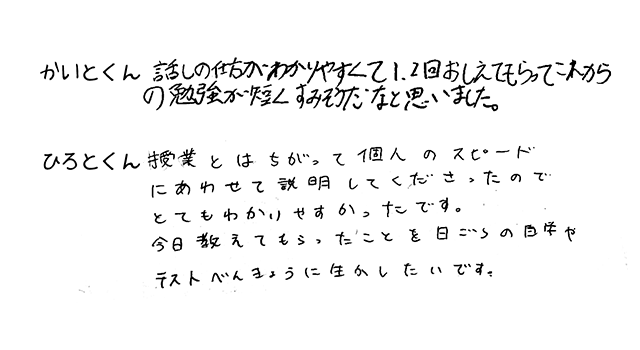 かいとくん 話しの仕方がわかりやすくて1、2回おしえてもらってこれから
の勉強が短くすみそうだなと思いました。
ひろとくん 授業とはちがって個人のスピード
にあわせて説明してくださったので
とてもわかりやすかったです。
今日教えてもらったことを日ごろの自学や
テストべんきょうに生かしたいです。